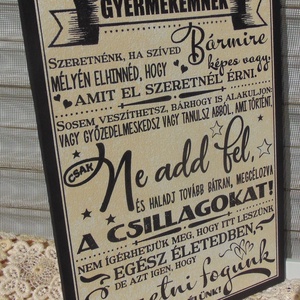 GYERMEKEMNEK
SZERETNÉNK, HA SZÍVED
MÉLYÉN ELHINNÉD, HOGY
Bármire
képes vagy:
AMIT EL SZERETNÉL ÉRNI.
SOSEM VESZÍTHETSZ, BÁRHOGY IS ALAKULJON:
VAGY GYŐZEDELMESKEDSZ VAGY TANULSZ ABBÓL, AMI TÖRTÉNT.
CSAK
Ne add fel,
ÉS HALADJ TOVÁBB BÁTRAN, MEGCÉLOZVA
A CSILLAGOKAT!
NEM ÍGÉRHETJÜK MEG, HOGY ITT LESZÜNK
EGÉSZ ÉLETEDBEN,
DE AZT IGEN, HOGY
fogunk